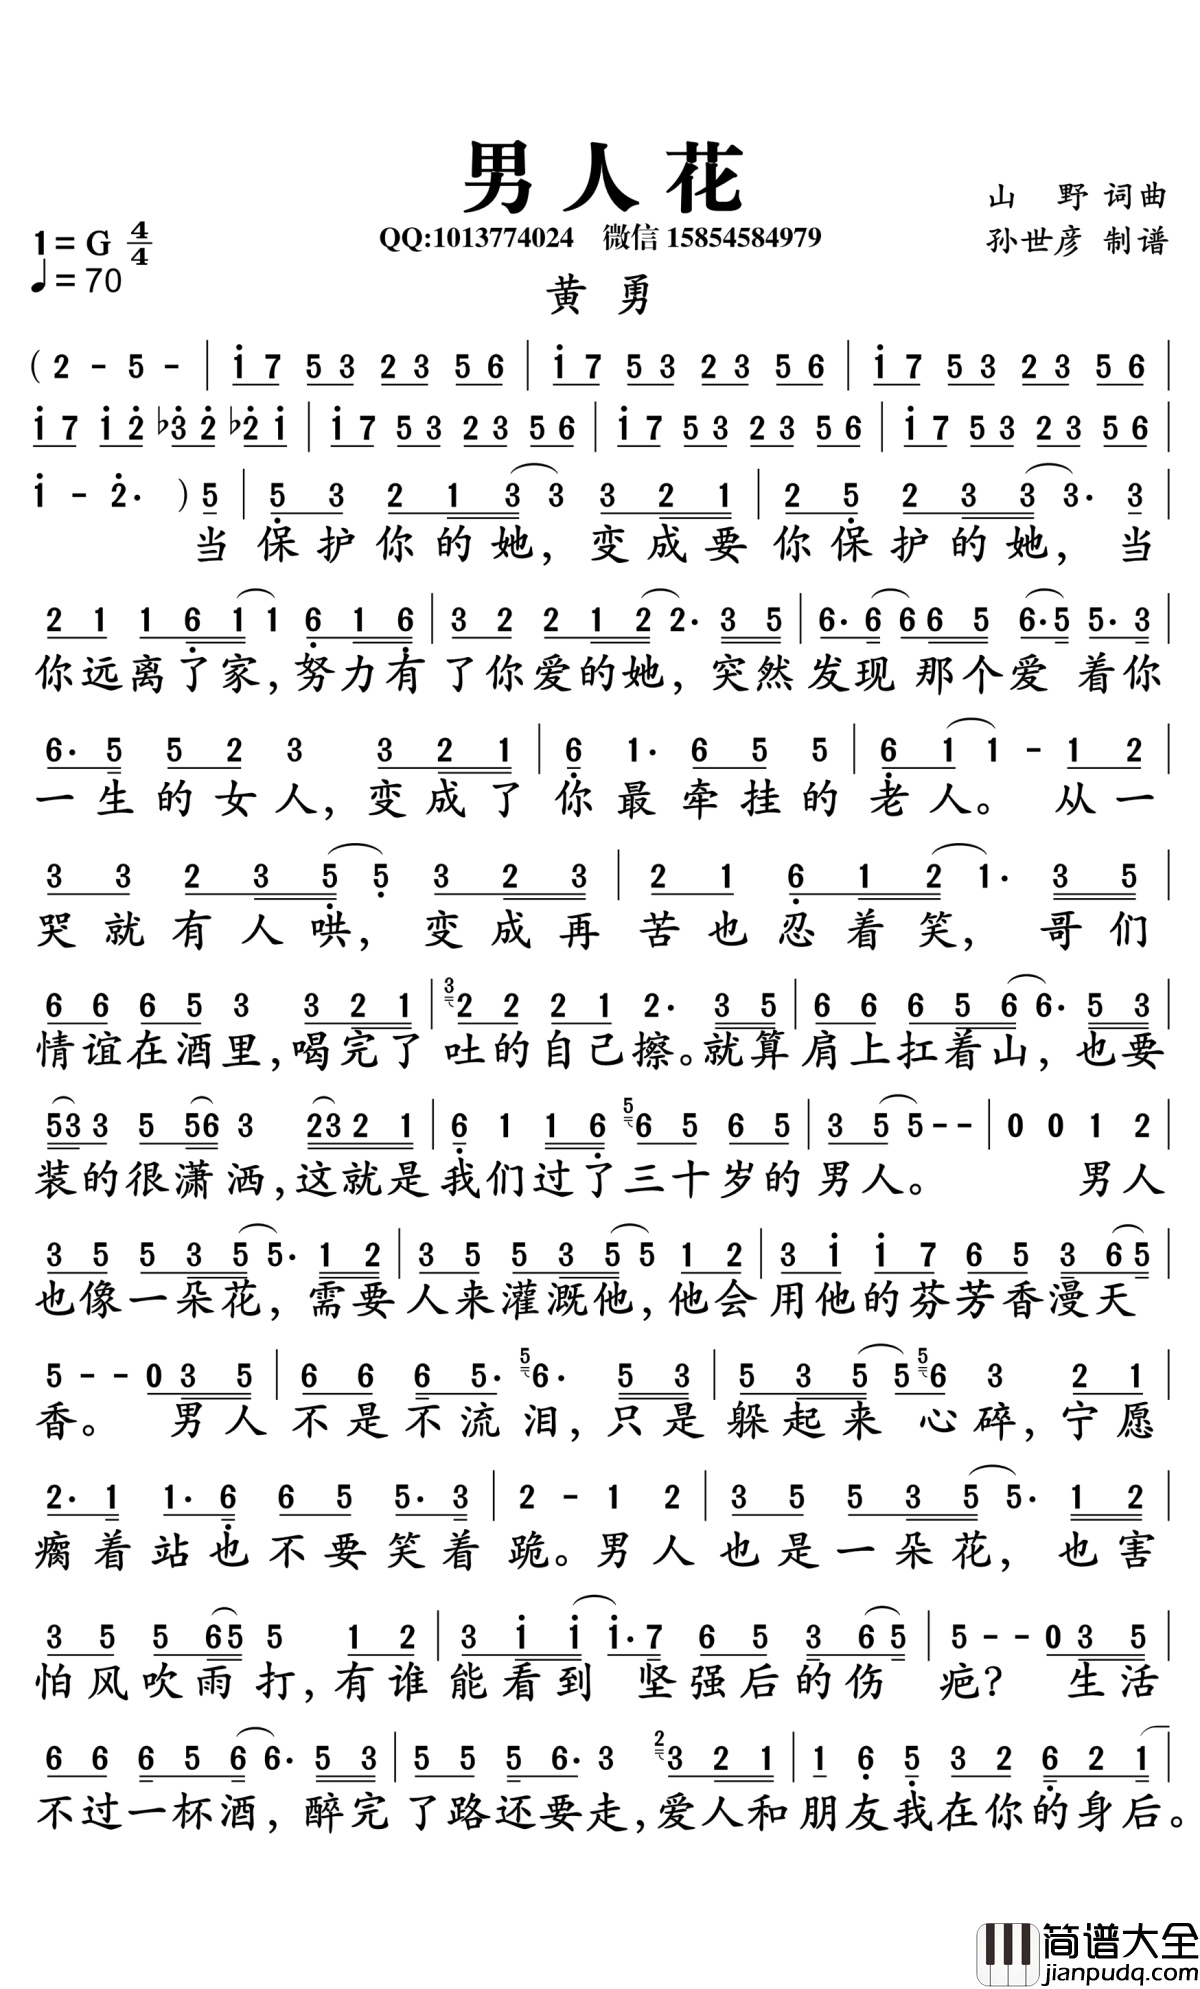 男人花
山 野 词曲
1=G 4/4
QQ:1013774024 微信 15854584979
孙世彦 制谱
♩=70
黄 勇
( 2 - 5 - | i 7 5 3 2 3 5 6 | i 7 5 3 2 3 5 6 | i 7 5 3 2 3 5 6 |
i 7 i 2 ♭3 2 ♭2 i | i 7 5 3 2 3 5 6 | i 7 5 3 2 3 5 6 | i 7 5 3 2 3 5 6
i - 2· ) 5 | 5 3 2 1 3 3 3 2 1 | 2 5 2 3 3 3· 3 |
当保护你的她，变成要你保护的她，当
2 1 1 6 1 1 6 1 6 | 3 2 2 1 2 2· 3 5 | 6· 6 6 6 5 6· 5 5· 3 |
你远离了家，努力有了你爱的她，突然发现那个爱着你
6· 5 5 2 3 3 2 1 | 6 1· 6 5 5 | 6 1 1 - 1 2 |
一生的女人，变成了你最牵挂的老人。从一
3 3 2 3 5 5 3 2 3 | 2 1 6 1 2 1· 3 5 |
哭就有人哄，变成再苦也忍着笑，哥们
6 6 6 5 3 3 2 1 | 3 2 2 2 1 2· 3 5 | 6 6 6 5 6 6· 5 3 |
情谊在酒里，喝完了吐的自己擦。就算肩上扛着山，也要
5 3 3 5 5 6 3 2 3 2 1 | 6 1 1 6 5 6 5 6 5 | 3 5 5 - - | 0 0 1 2 |
装的很潇洒，这就是我们过了三十岁的男人。 男人
3 5 5 3 5 5· 1 2 | 3 5 5 3 5 5 1 2 | 3 i i 7 6 5 3 6 5 |
也像一朵花，需要人来灌溉他，他会用他的芬芳香漫天
5 - - 0 3 5 | 6 6 6 5· 5 6· 5 3 | 5 3 5 5 5 6 3 2 1 |
香。 男人不是不流泪，只是躲起来心碎，宁愿
2· 1 1· 6 6 5 5· 3 | 2 - 1 2 | 3 5 5 3 5 5· 1 2 |
瘸着站也不要笑着跪。男人也是一朵花，也害
3 5 5 6 5 5 1 2 | 3 i i i· 7 6 5 3 6 5 | 5 - - 0 3 5 |
怕风吹雨打，有谁能看到坚强后的伤疤？ 生活
6 6 6 5 6 6· 5 3 | 5 5 5 6· 3 2 3 2 1 | 1 6 5 3 2 6 2 1 |
不过一杯酒，醉完了路还要走，爱人和朋友我在你的身后。
简谱大全
jianpudq.com